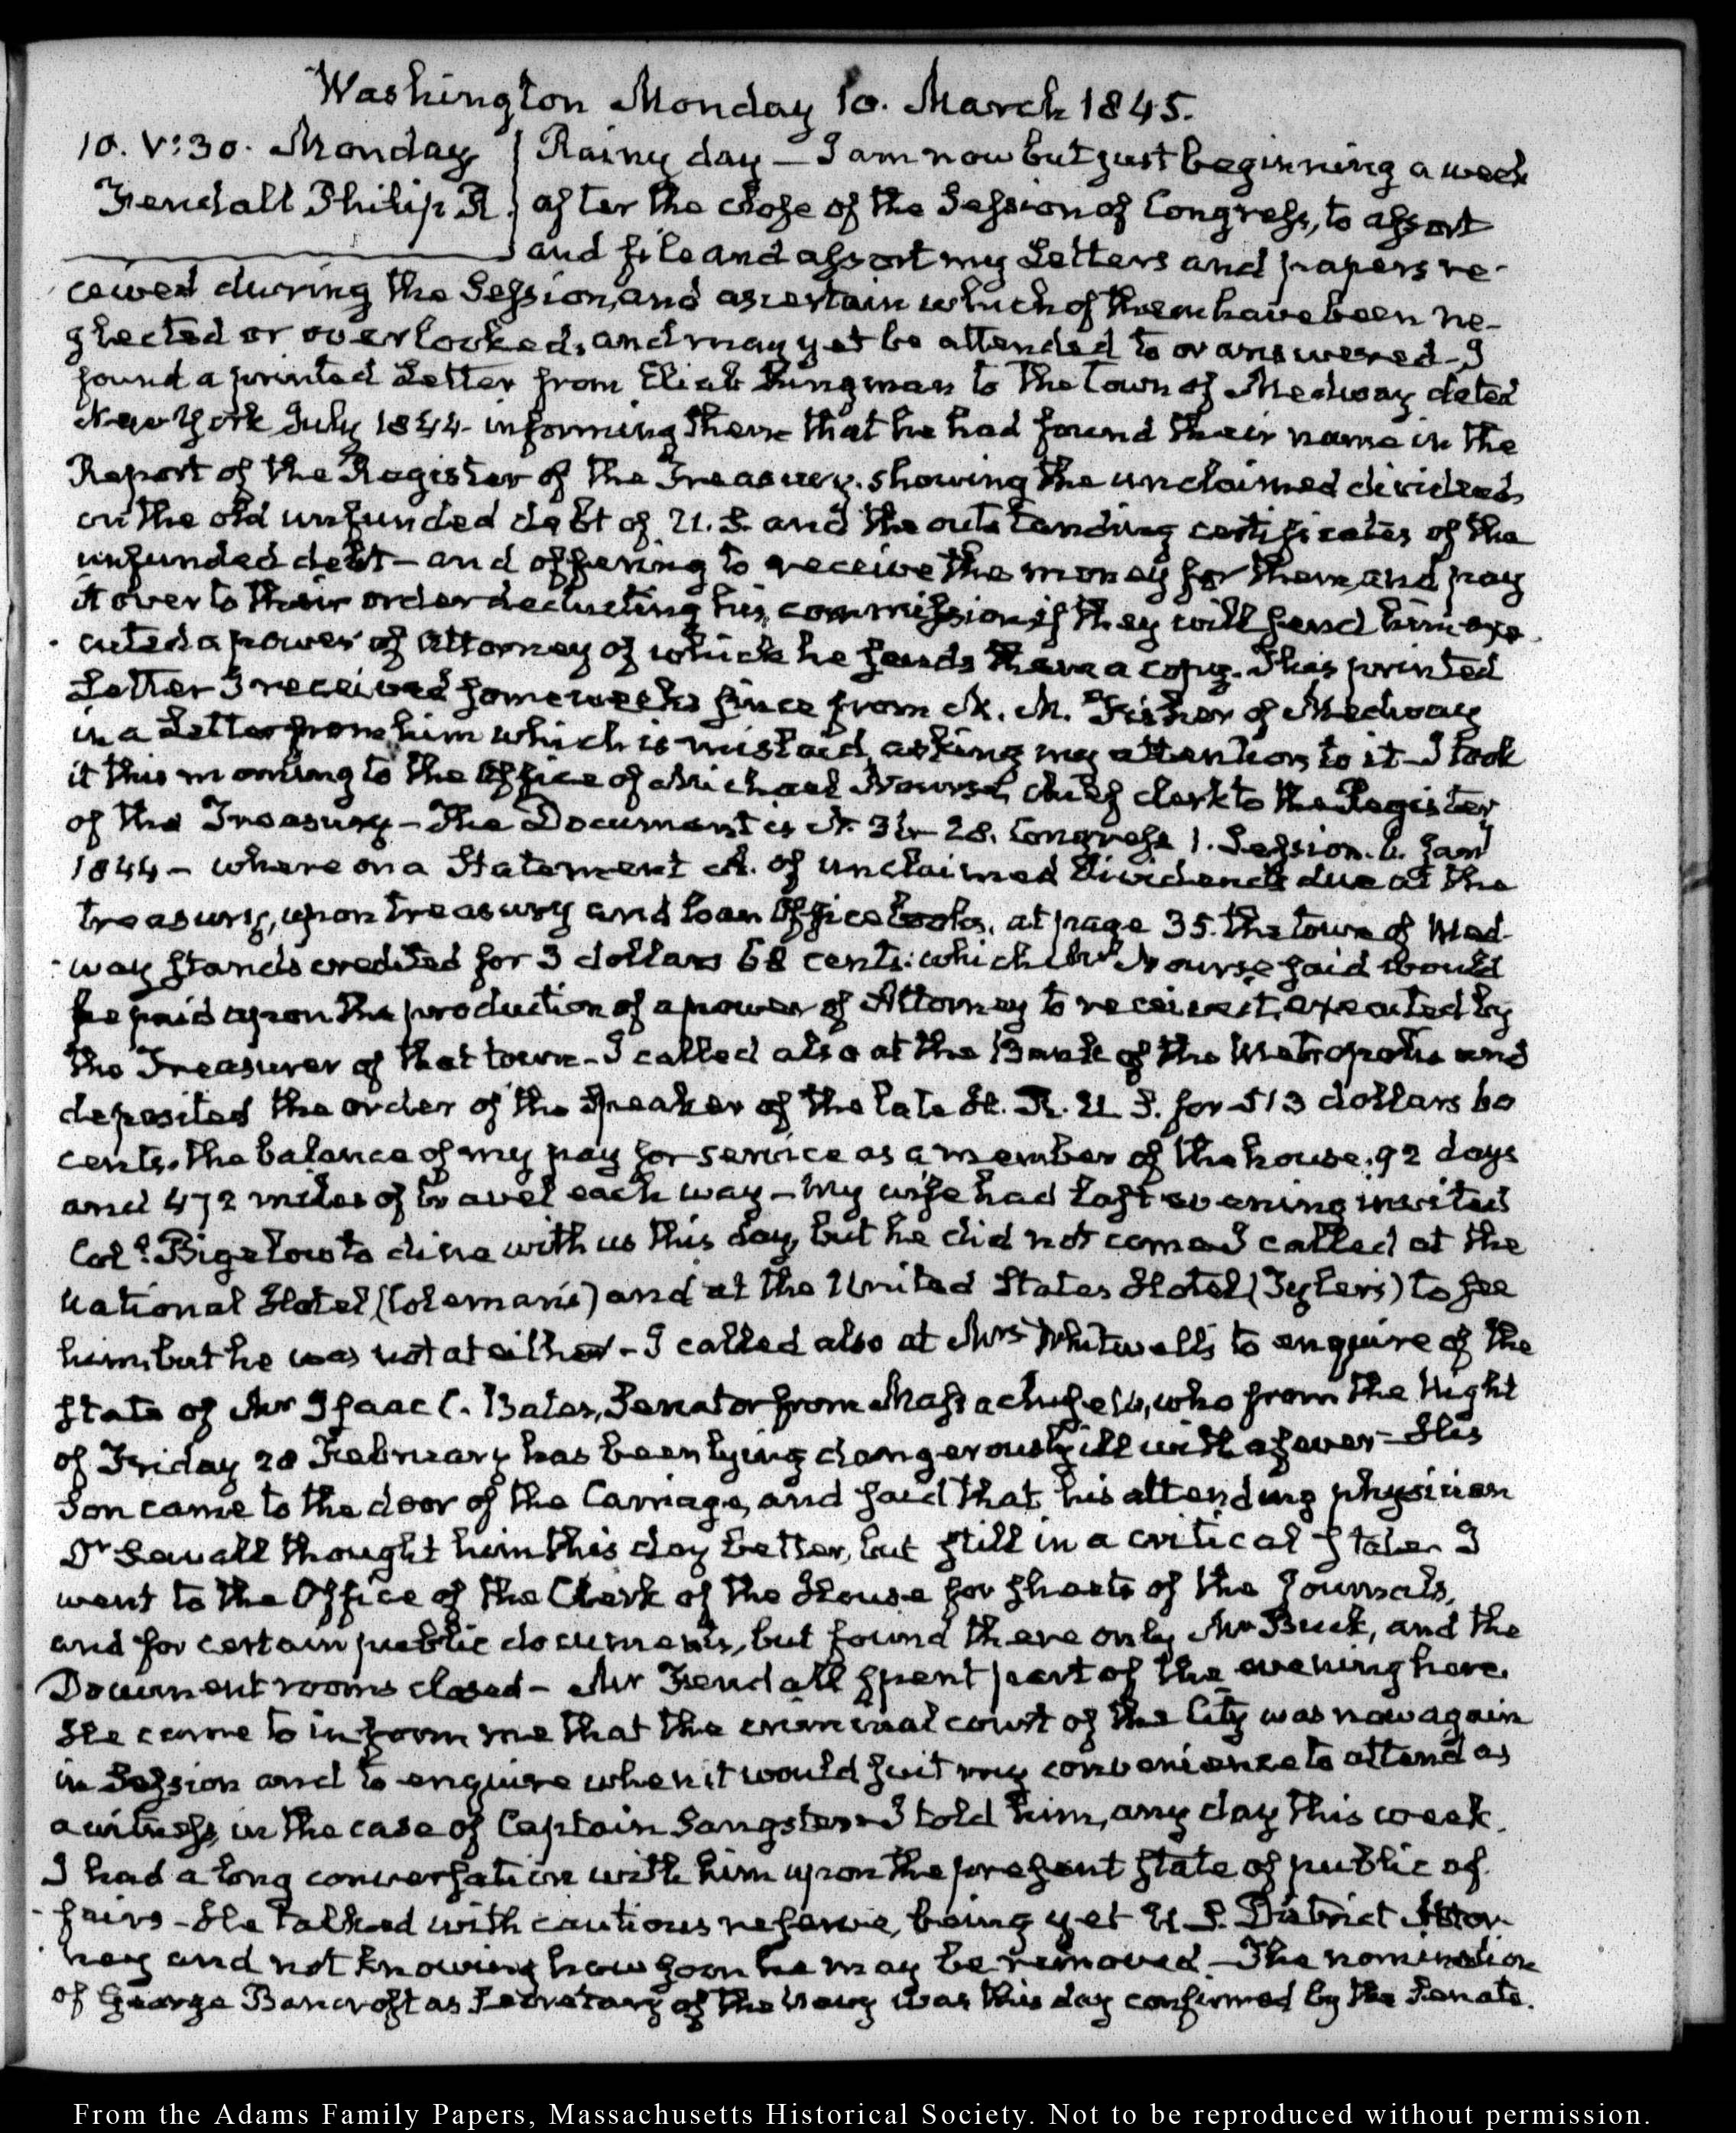 Washington Monday 10. March 1845.
10. V:30. Monday
Fendall Philip R.
Rainy day — I am now but just beginning a week
after the close of the Session of Congress, to assort
and file and assort my Letters and papers re-
ceived during the Session, and ascertain which of them have been ne-
glected or overlooked, and may yet be attended to or answered — I
found a printed Letter from Eliab Kingman to the town of Medway dated
New York July 1844 informing them that he had found their name in the
Report of the Register of the Treasury, showing the unclaimed dividends
on the old unfunded debt of U.S. and the outstanding certificates of the
unfunded debt — and offering to receive the money for them, and pay
it over to their order deducting his commission if they will send him exe-
cuted a power of Attorney of which he sends them a copy. This printed
Letter I received some weeks since from M. M. Fisher of Medway
in a Letter from him which is mislaid, asking my attention to it — I took
it this morning to the Office of Michael Nourse, chief clerk to the Register
of the Treasury — The Document is N. 28. Congress 1. Session. Jany
1844 — where on a Statement A. of unclaimed dividends due at the
treasury, upon treasury and loan Office books, at page 35. the town of Med-
way stands credited for 3 dollars 68 cents: which Mr Nourse said would
be paid upon the production of a power of Attorney to receive it, executed by
the Treasurer of that town — I called also at the Bank of the Metropolis and
deposited the order of the Speaker of the late H. R. U S. for 513 dollars 60
cents, the balance of my pay for service as a member of the house, 92 days
and 472 miles of travel each way — My wife had last evening invited
Col. Bigelow to dine with us this day, but he did not come. I called at the
National Hotel (Coleman's) and at the United States Hotel (Tyler's) to see
him, but he was not at either — I called also at Mrs Whitwell's to enquire of the
state of Mr Isaac C. Bates, Senator from Massachusetts, who from the Night
of Friday 28 February has been lying dangerously ill with a fever — His
Son came to the door of the Carriage, and said that his attending physician
Dr Sewall thought him this day better, but still in a critical state. I
went to the Office of the Clerk of the House for sheets of the Journals,
and for certain public documents, but found there only Mr Buck, and the
Document rooms closed — Mr Fendall spent part of the evening here.
He came to inform me that the criminal court of the City was now again
in Session and to enquire when it would suit my convenience to attend as
a witness, in the case of Captain Sangster — I told him, any day this week.
I had a long conversation with him upon the present state of public af-
fairs — He talked with cautious reserve, being yet U. S. District Attor-
ney and not knowing how soon he may be removed. — The nomination
of George Bancroft as Secretary of the Navy was this day confirmed by the Senate.
From the Adams Family Papers, Massachusetts Historical Society. Not to be reproduced without permission.